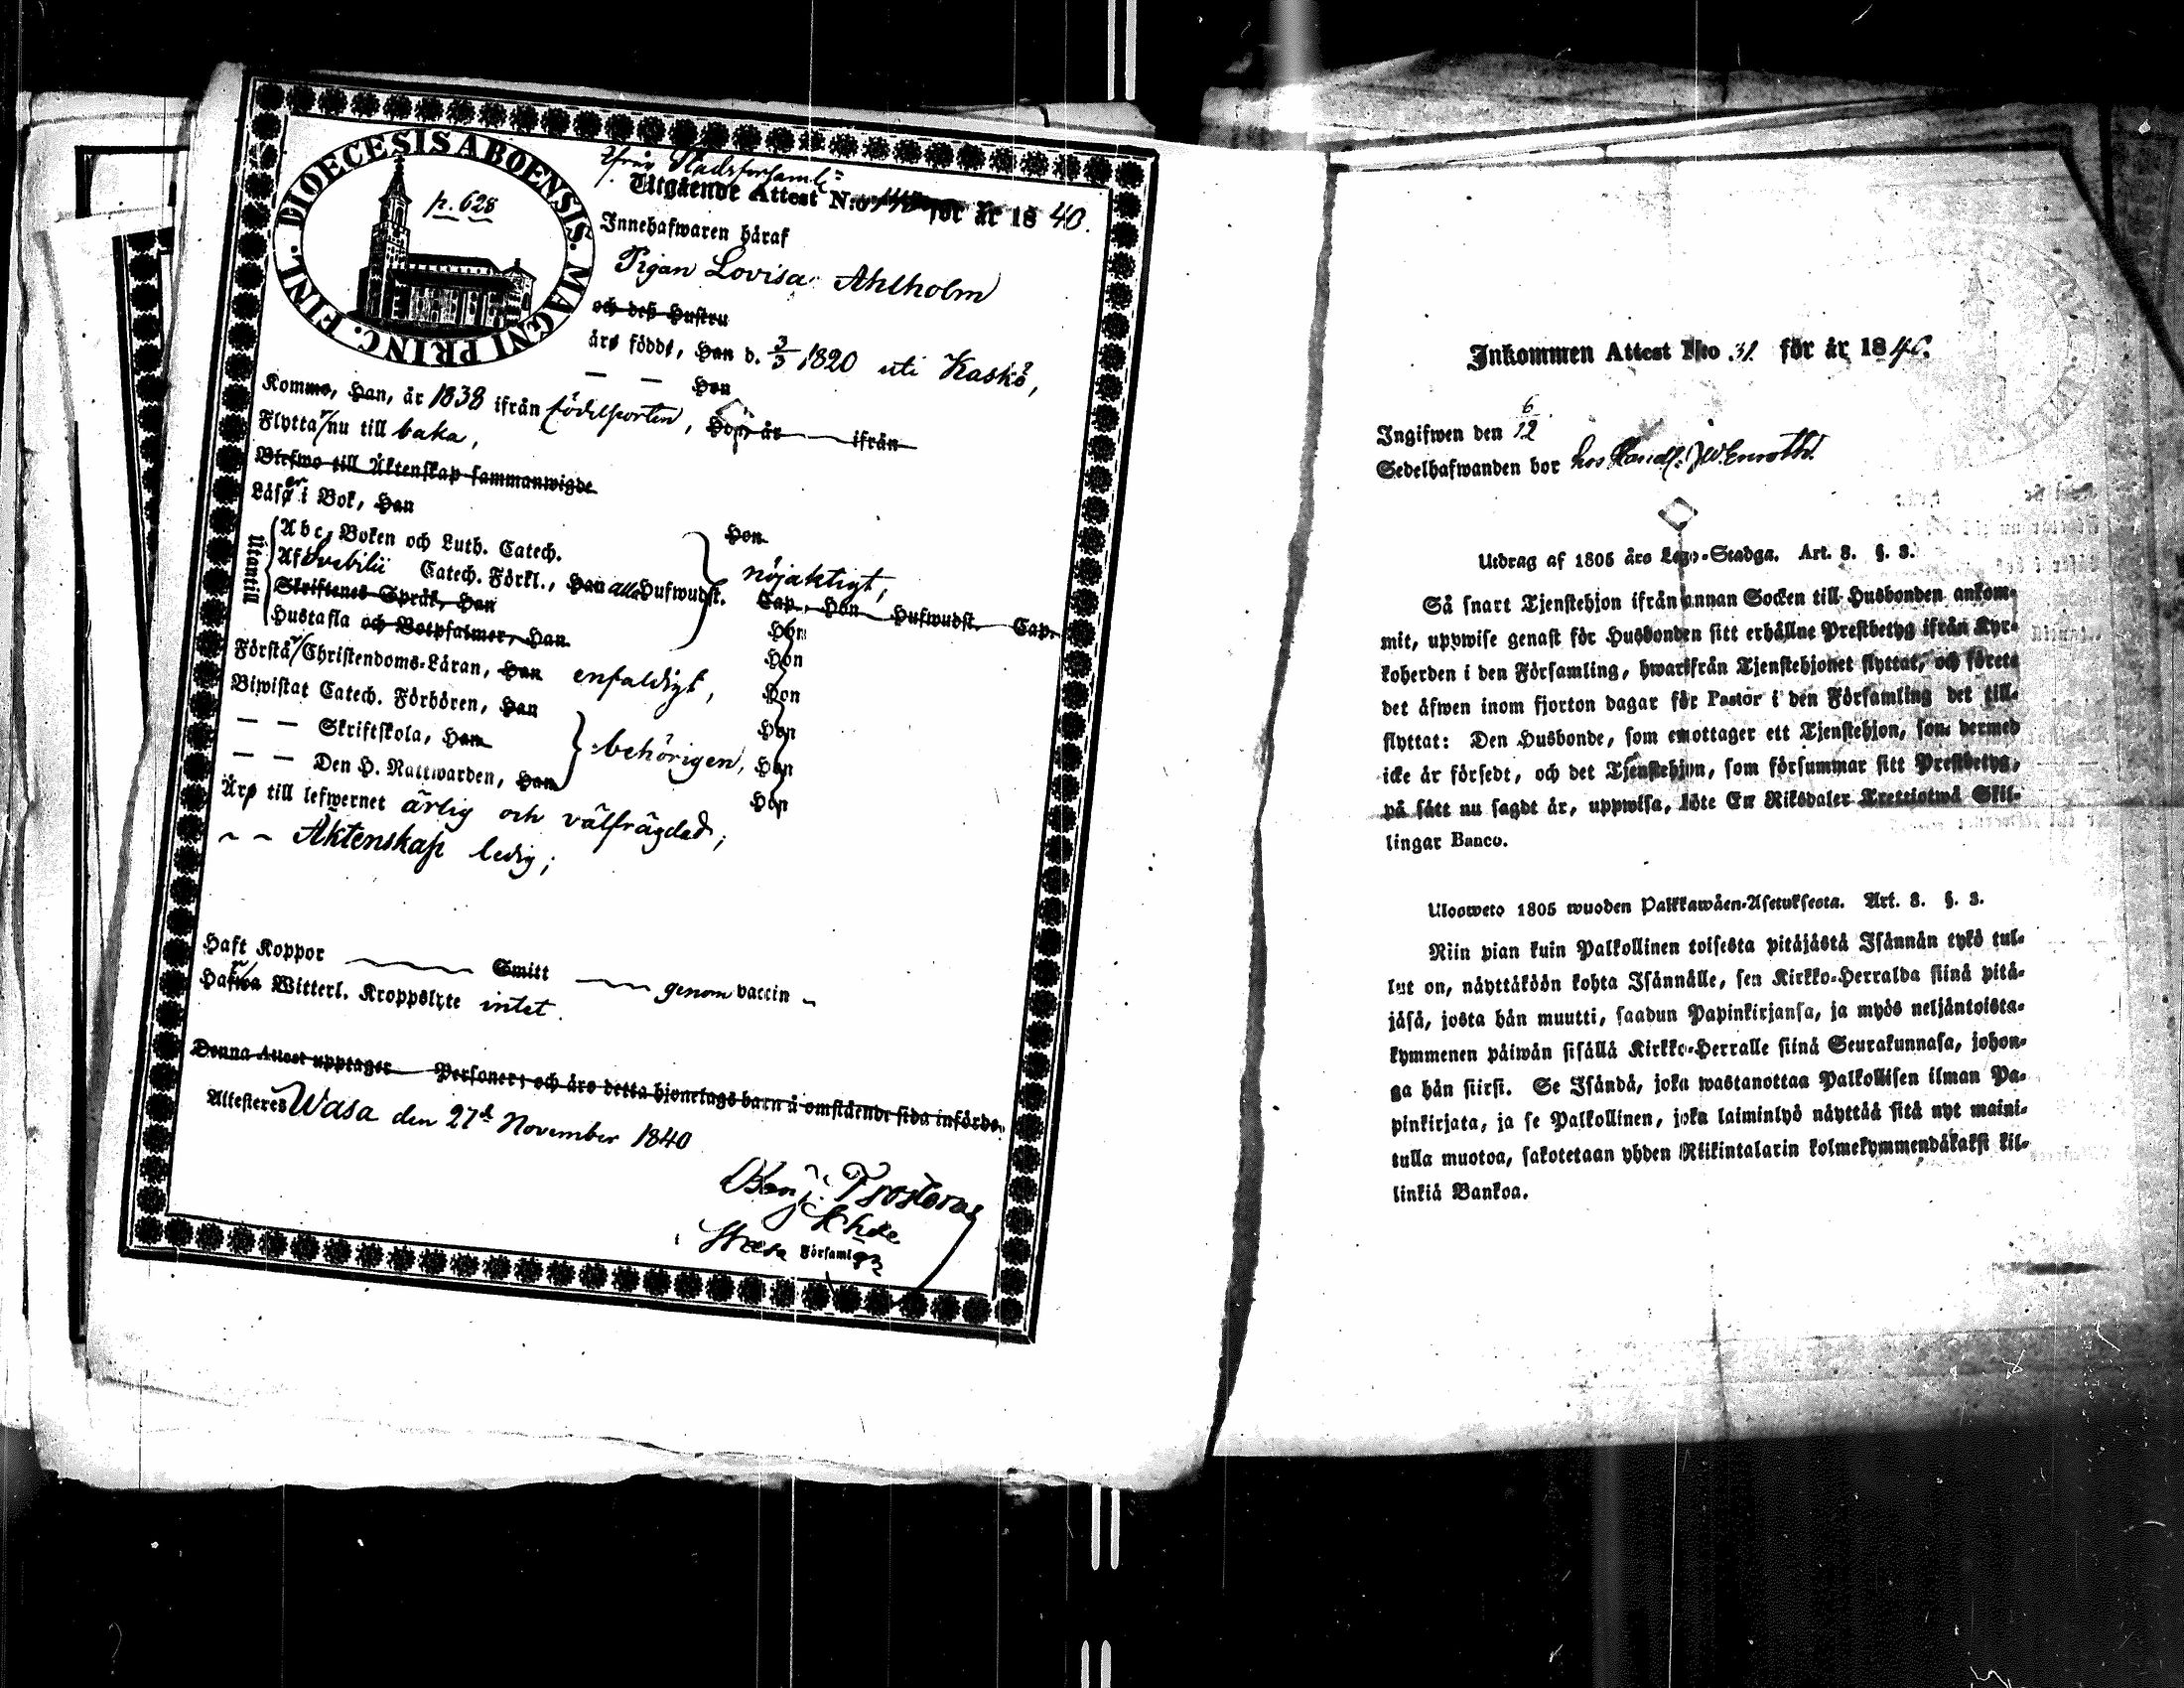 DIOECESIS ABOENSIS. MAGNI PRINC. FINL.
p. 628
ifrån Stadsförsaml:
Utgående Attest N:o för år 1840.
Innehafwaren häraf
Pigan Lovisa Ahlholm
och deß Hustru
äro födde, Han d. 3/3 1820 uti Kaskö,
— — Hon
Komme, Han, år 1838 ifrån födelseorten, Hon, år — ifrån
Flytta nu till baka,
Blefwo till Äktenskap sammanwigde
Läsa i Bok, Han Hon
Utantill
Abc-Boken och Luth. Catech. nöjaktigt,
Af Svebilii Catech. Förkl., Han alla Hufwudst. Cap., Hon Hufwudst. Cap.
Skriftenes Språk, Han Hon
Hustafla och Botpsalmer, Han Hon
Förstå Christendoms-Läran, Han enfaldigt, Hon
Biwistat Catech. Förhören, Han Hon
— — Skriftskola, Han behörigen, Hon
— — Den H. Nattwarden, Han Hon
Äro till lefwernet ärlig och välfrägdad;
~ ~ Äktenskap ledig;
Haft Koppor Smitt genom vaccin
Hafwa Witterl. Kroppslyte intet.
Denna Attest upptager Personer; och äro detta hjonelags barn å omstående sida införde.
Attesteres Wasa den 27d November 1840
Benj. Frosterus
Khde
i Wasa Församl.
Inkommen Attest N:o 31. för år 1840.
Ingifwen den 6/12
Sedelhafwanden bor hos Handl: J W Enroth.
Utdrag af 1805 års Lego-Stadga. Art. 8. §. 3.
Så snart Tjenstehjon ifrån annan Socken till Husbonden ankom-
mit, uppwise genast för Husbonden sitt erhållne Prestbetyg ifrån Kyr-
koherden i den Församling, hwarifrån Tjenstehjonet flyttat, och förete
det äfwen inom fjorton dagar för Pastor i den Församling det till-
flyttat: Den Husbonde, som emottager ett Tjenstehjon, som dermed
icke är försedt, och det Tjenstehjon, som försummar sitt Prestbetyg,
på sätt nu sagdt är, uppwisa, böte En Riksdaler Trettiotwå Skil-
lingar Banco.
Ulosweto 1805 wuoden Palkkawäen-Asetuksesta. Art. 8. §. 3.
Niin pian kuin Palkollinen toisesta pitäjästä Isännän tykö tul-
lut on, näyttäköön kohta Isännälle, sen Kirkko-Herralda siinä pitä-
jäsä, josta hän muutti, saadun Papinkirjansa, ja myös neljäntoista-
kymmenen päiwän sisällä Kirkko-Herralle siinä Seurakunnasa, johon-
ga hän siirsi. Se Isändä, joka wastanottaa Palkollisen ilman Pa-
pinkirjata, ja se Palkollinen, joka laiminlyö näyttää sitä nyt maini-
tulla muotoa, sakotetaan yhden Riikintalarin kolmekymmendäkaksi kil-
linkiä Bankoa.